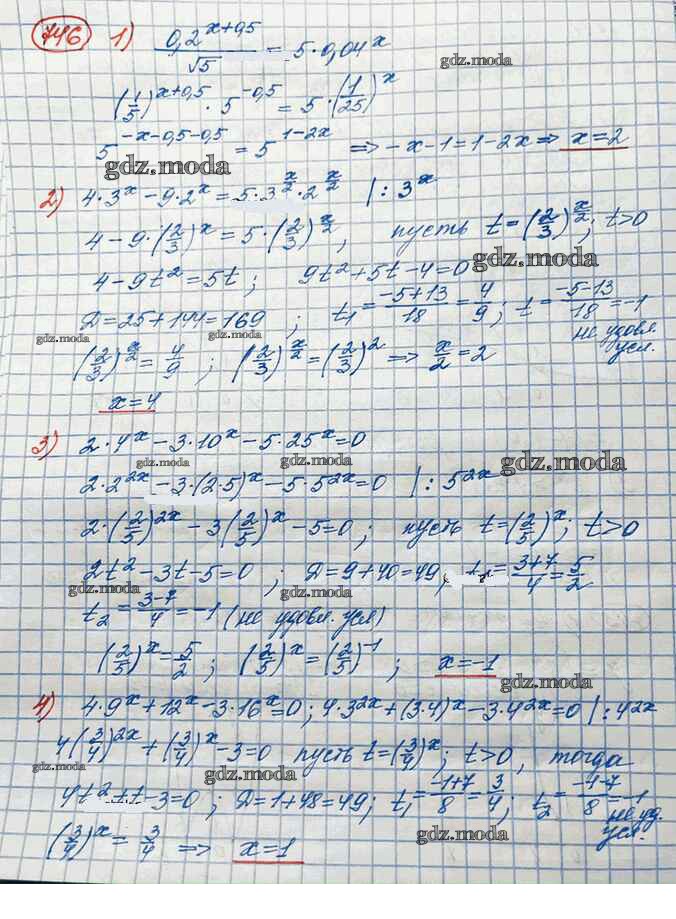 746 1) 0,2^(x+0,5)/√5 = 5·0,04^x
gdz.moda
(1/5)^(x+0,5) · 5^(-0,5) = 5·(1/25)^x
5^(-x-0,5-0,5) = 5^(1-2x) => -x-1=1-2x => x=2
gdz.moda
2) 4·3^x - 9·2^x = 5·3^(x/2)·2^(x/2) |:3^x
gdz.moda
4-9·(2/3)^x = 5·(2/3)^(x/2), пусть t=(2/3)^(x/2); t>0
gdz.moda
4-9t²=5t; 9t²+5t-4=0
Д=25+144=169; t₁=(-5+13)/18=4/9; t=(-5-13)/18=-1
не удовл. усл.
gdz.moda
gdz.moda
(2/3)^(x/2)=4/9; (2/3)^(x/2)=(2/3)² => x/2=2
x=4
3) 2·4^x-3·10^x-5·25^x=0
gdz.moda
gdz.moda
gdz.moda
2·2^(2x)-3·(2·5)^x-5·5^(2x)=0 |:5^(2x)
2·(2/5)^(2x)-3(2/5)^x-5=0; пусть t=(2/5)^x; t>0
2t²-3t-5=0; Д=9+40=49, t₁=(3+7)/4=5/2
gdz.moda
gdz.moda
t₂=(3-7)/4=-1 (не удовл. усл)
(2/5)^x=5/2; (2/5)^x=(2/5)^(-1); x=-1
gdz.moda
4) 4·9^x+12^x-3·16^x=0; 4·3^(2x)+(3·4)^x-3·4^(2x)=0 |:4^(2x)
gdz.moda
4(3/4)^(2x)+(3/4)^x-3=0 пусть t=(3/4)^x; t>0, тогда
gdz.moda
gdz.moda
4t²+t-3=0; Д=1+48=49; t₁=(-1+7)/8=3/4; t₂=(-1-7)/8=-1
не уд. усл.
(3/4)^x=3/4 => x=1
gdz.moda